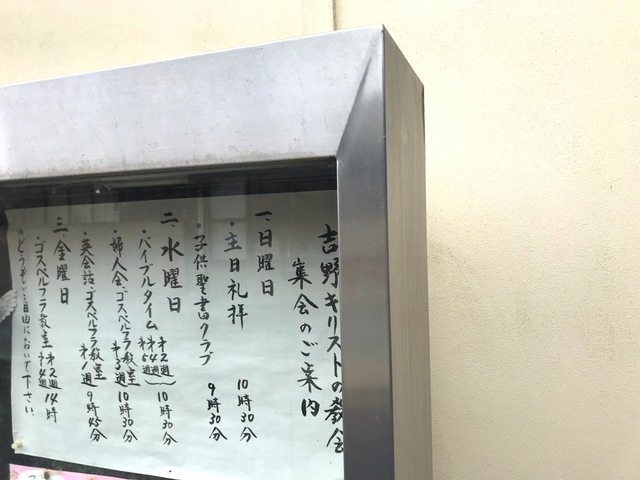 吉野キリストの教会
集会のご案内
一、日曜日
・主日礼拝 10時30分
・子供聖書クラブ 9時30分
二、水曜日
・バイブルタイム 第2週 第4週 第5週 10時30分
・婦人会、ゴスペルフラ教室 第3週 10時30分
・英会話、ゴスペルフラ教室 第1週 9時45分
三、金曜日
・ゴスペルフラ教室 第2週 第4週 14時
どうぞご自由においで下さい。